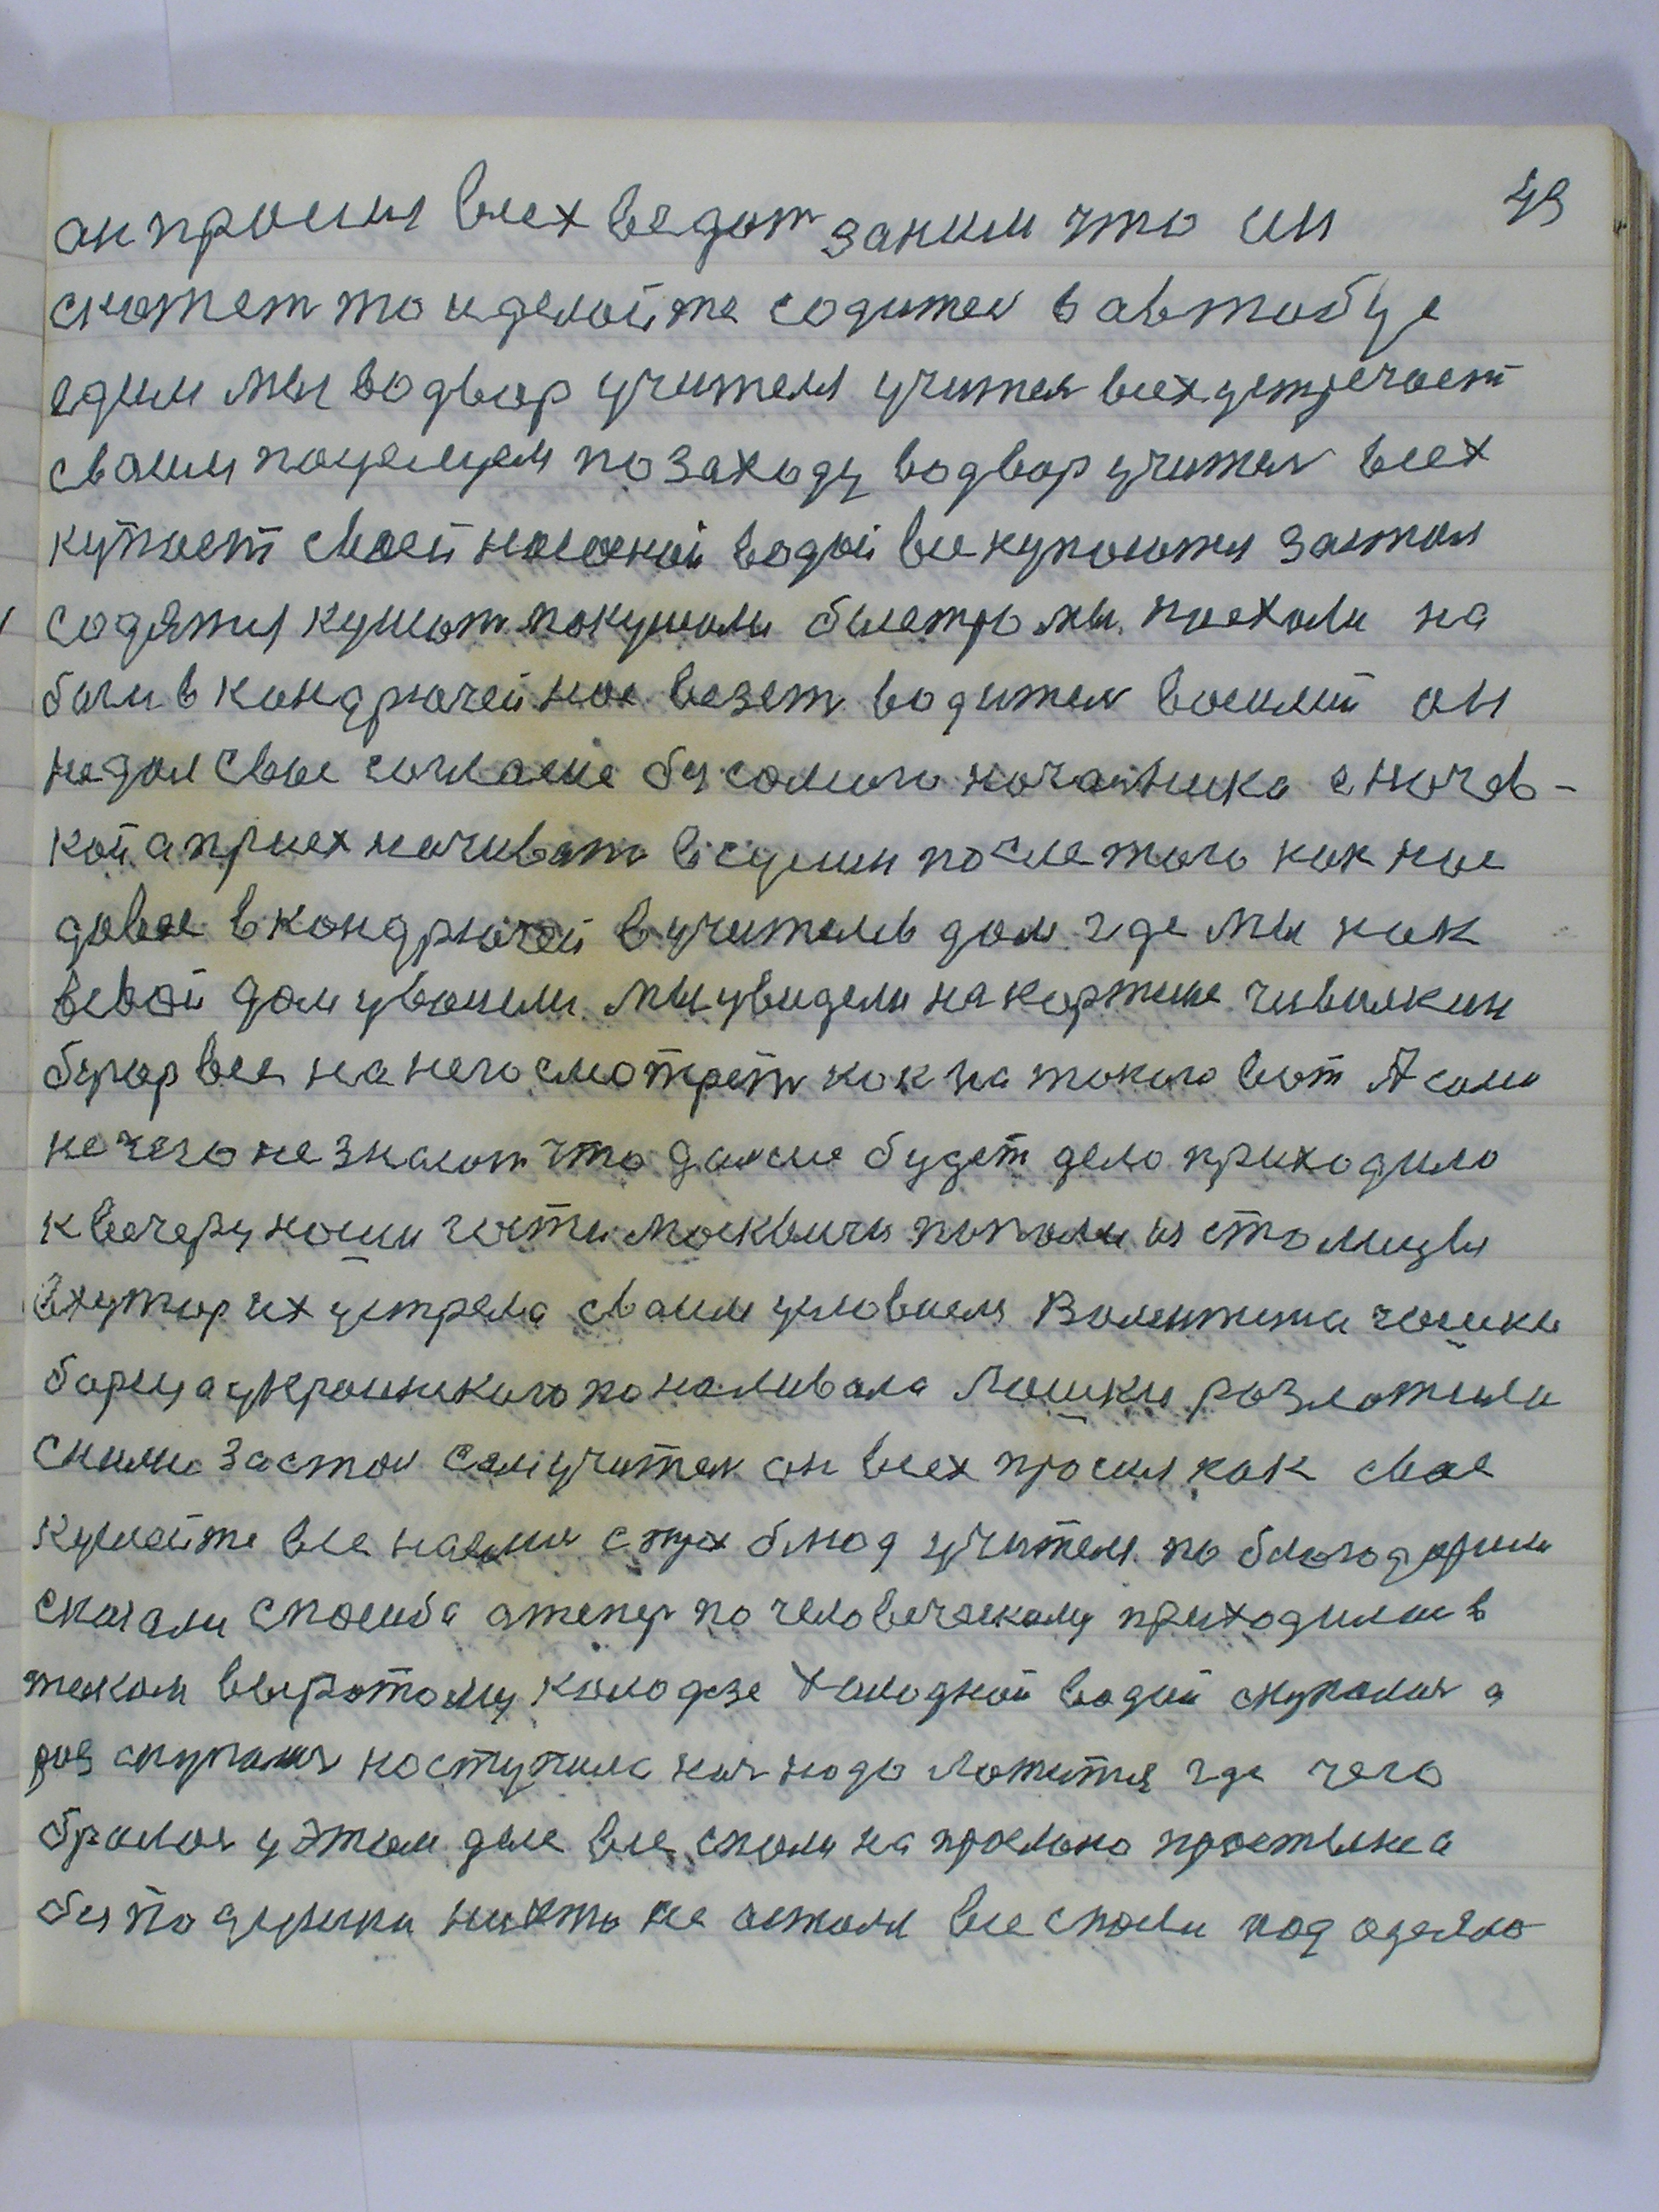 49
он просил всех ведот заним что им
скажет то и делойте содител в автобус
едим мы водвор учителя учител всех устречает
своим поцелуем по заходу водвор учител всех
купает своей наложной водой все купоются застол
содятся кушот покушоли быстро мы поехоли на
богив кондрючей нос везет водител восилий он
недол свое согласие без сомого ночалника с ночев-
кой априех ночиват всумы после того как нос
довез в кондрючей в учителев дом где мы как
всвой дом увошли мы увидели на кортине чивилкин
бугор все на него смотрет кок на токого вот А сами
нечего не знают что далше будет дело приходило
к вечеру ноши гости москвичи попали из столицы
вхутор их устрела своим условием Волентина чошки
борща украинского поналивала Лошки розложила
сними застол сам учител он всех просил как свое
кушейте все наели стух блюд учителя поблогодорили
скозали спосиба отепер по человеческому приходилос в
таком выротому колодзе Холодной водой скупалис а
роз скупалис наступила нич нодо ложится где чего
бролос у этом деле все споли на проелоно простыня а
без подушки никто не остолс все споли под одеяло